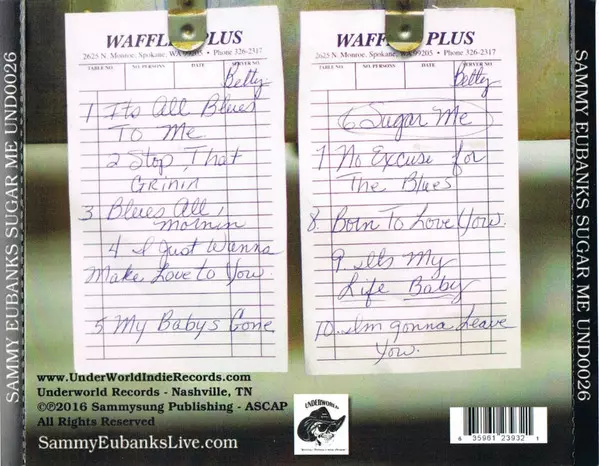 SAMMY EUBANKS SUGAR ME UND0026
WAFFLES PLUS
2625 N. Monroe, Spokane, WA 99205 • Phone 326-2317
TABLE NO. NO. PERSONS DATE SERVER NO.
Betty
1 Its All Blues
To Me
2 Stop That
Grinin
3 Blues All,
mornin
4 I Just Wanna
Make Love to You.
5 My Babys Gone
WAFFLES PLUS
2625 N. Monroe, Spokane, WA 99205 • Phone 326-2317
TABLE NO. NO. PERSONS DATE SERVER NO.
Betty
6 Sugar Me
7 No Excuse for
The Blues
8. Born To Love You.
9. Its My
Life Baby
10. Im gonna Leave
You.
www.UnderWorldIndieRecords.com
Underworld Records - Nashville, TN
©℗2016 Sammysung Publishing - ASCAP
All Rights Reserved
SammyEubanksLive.com
UNDERWORLD
6 35981 23932 1
SAMMY EUBANKS SUGAR ME UND0026